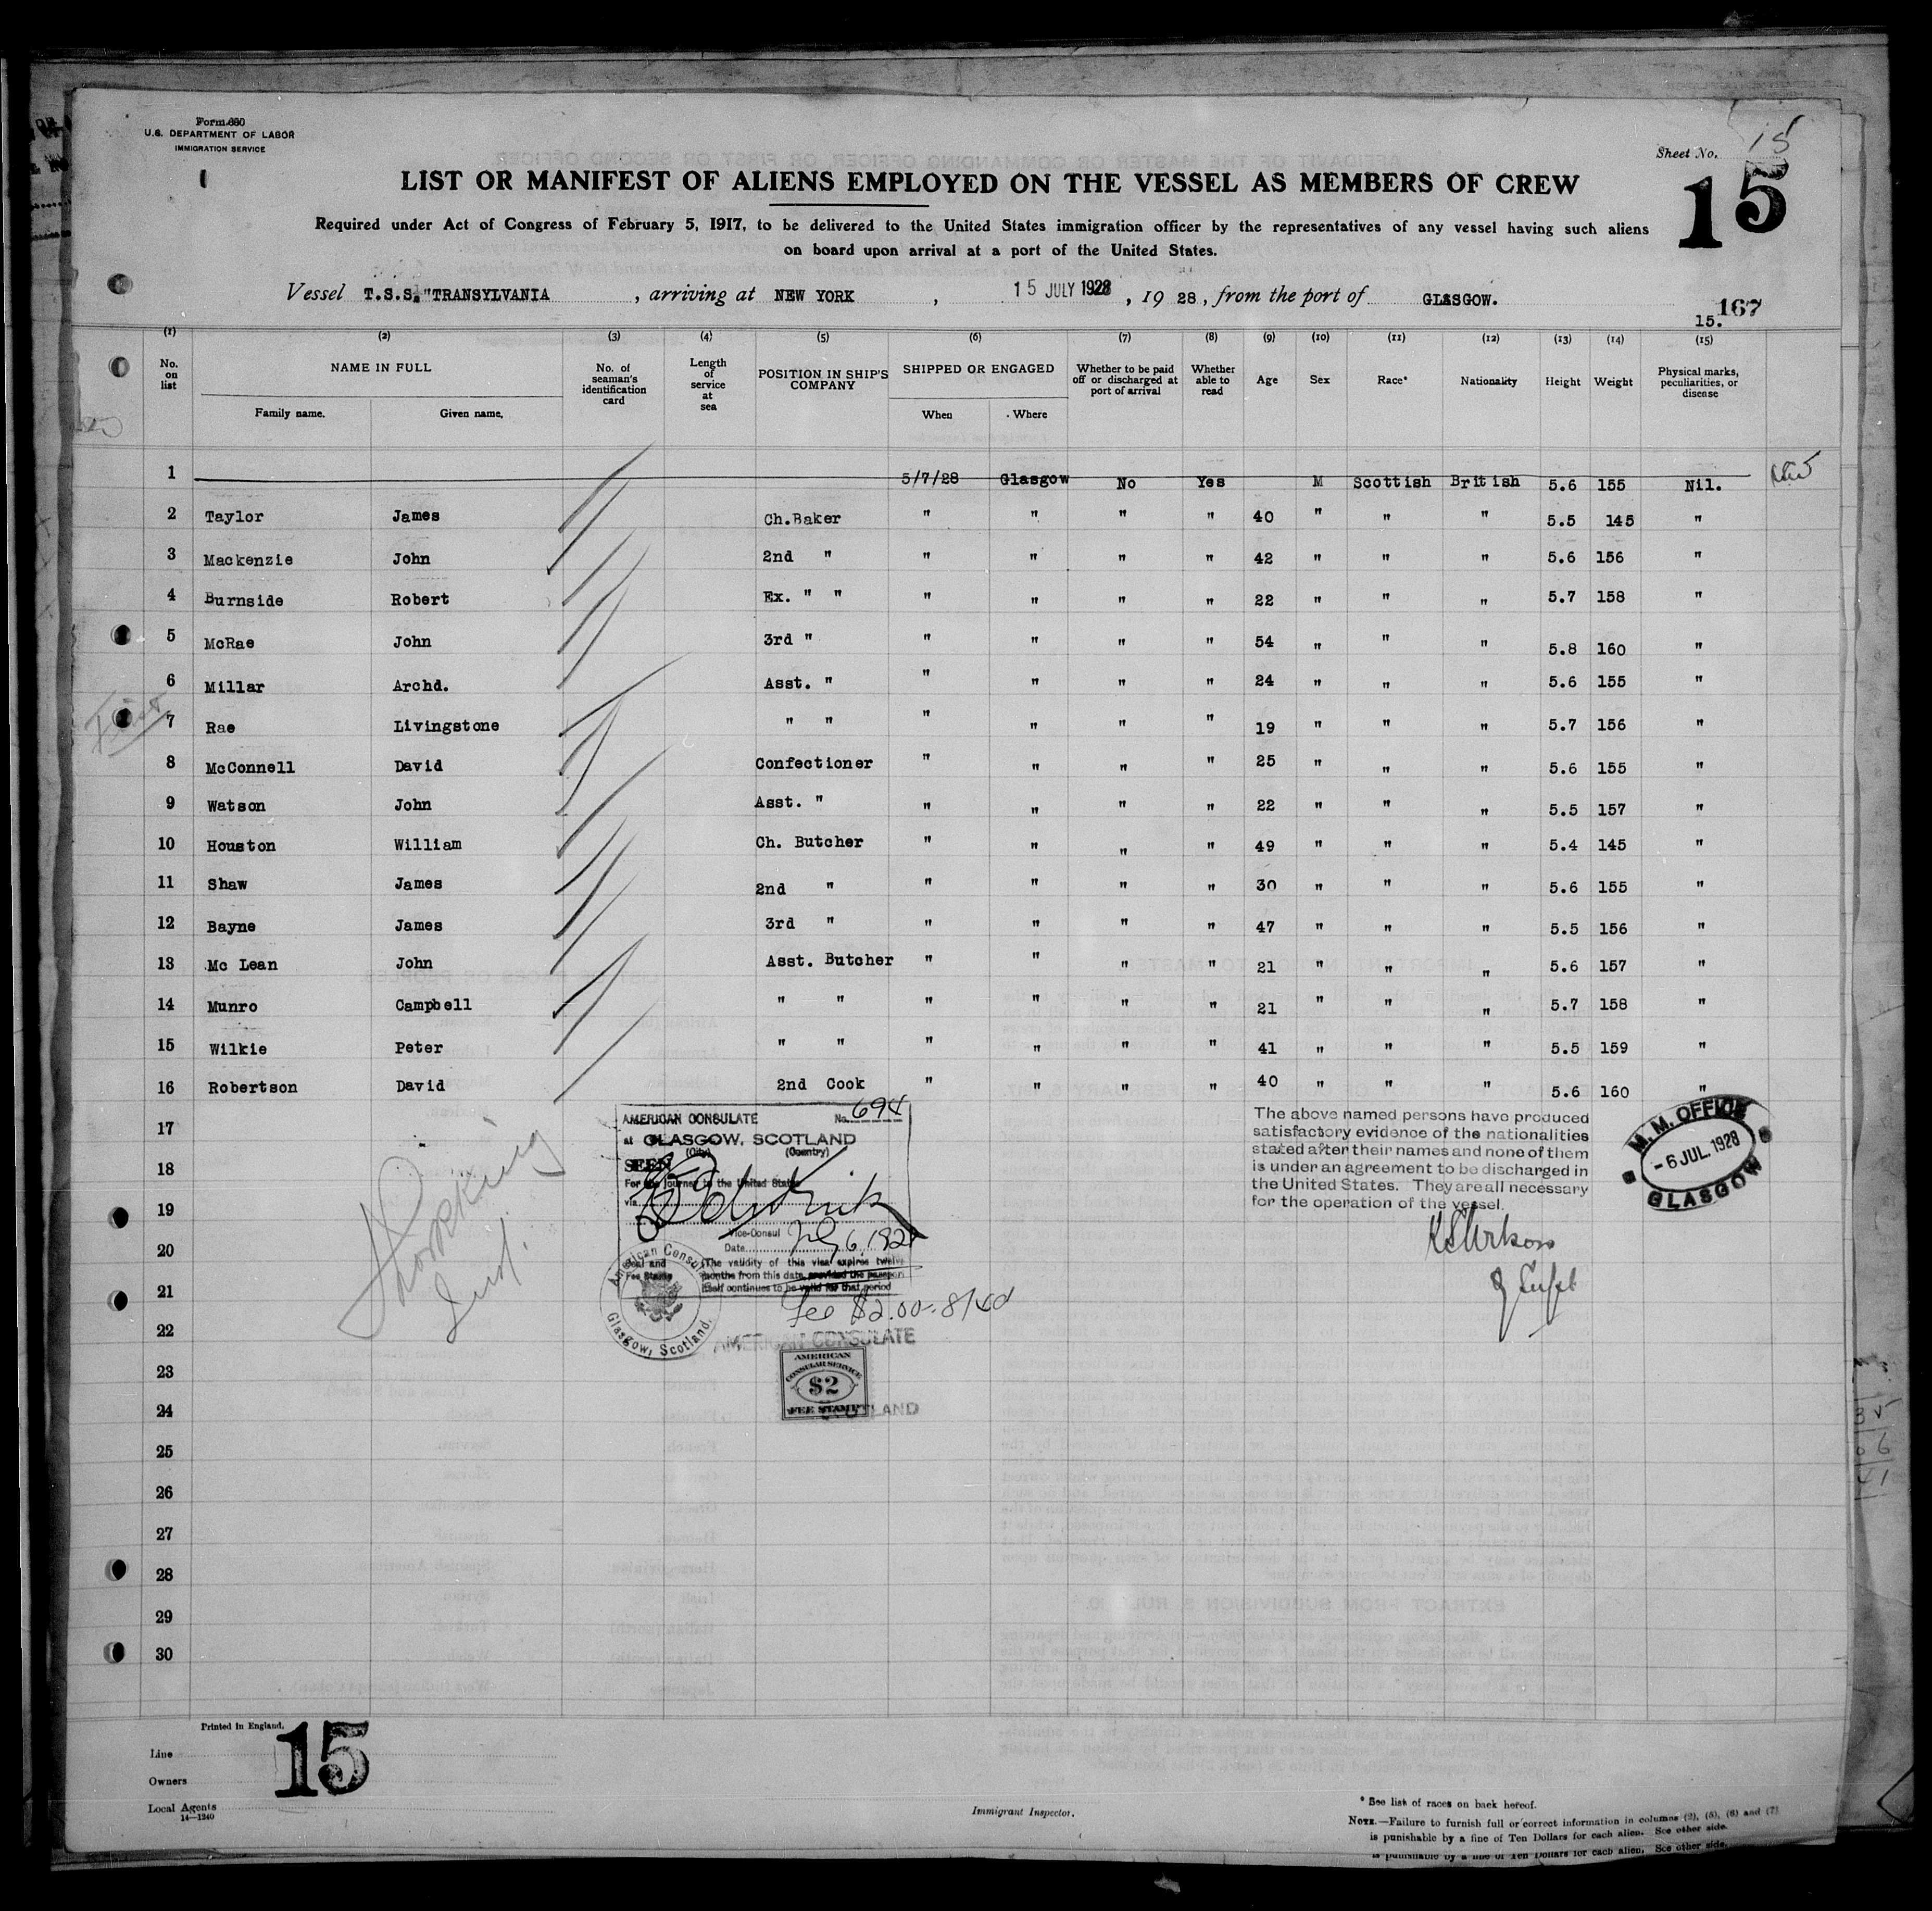 Form 680
U.S. DEPARTMENT OF LABOR
IMMIGRATION SERVICE
Sheet No. 15
15
LIST OR MANIFEST OF ALIENS EMPLOYED ON THE VESSEL AS MEMBERS OF CREW
Required under Act of Congress of February 5, 1917, to be delivered to the United States immigration officer by the representatives of any vessel having such aliens
on board upon arrival at a port of the United States.
Vessel T.S.S. "TRANSYLVANIA , arriving at NEW YORK , 15 JULY 1928 , 19 28, from the port of GLASGOW.
15. 167
(1) (2) (3) (4) (5) (6) (7) (8) (9) (10) (11) (12) (13) (14) (15)
No. on list NAME IN FULL Family name. Given name. No. of seaman's identification card Length of service at sea POSITION IN SHIP'S COMPANY SHIPPED OR ENGAGED When Where Whether to be paid off or discharged at port of arrival Whether able to read Age Sex Race* Nationality Height Weight Physical marks, peculiarities, or disease
1 5/7/28 Glasgow No Yes M Scottish British 5.6 155 Nil.
2 Taylor James Ch.Baker " " " " 40 " " " 5.5 145 "
3 Mackenzie John 2nd " " " " " 42 " " " 5.6 156 "
4 Burnside Robert Ex. " " " " " " 22 " " " 5.7 158 "
5 McRae John 3rd " " " " " 54 " " " 5.8 160 "
6 Millar Archd. Asst. " " " " " 24 " " " 5.6 155 "
7 Rae Livingstone " " " " " " 19 " " " 5.7 156 "
8 McConnell David Confectioner " " " " 25 " " " 5.6 155 "
9 Watson John Asst. " " " " " 22 " " " 5.5 157 "
10 Houston William Ch. Butcher " " " " 49 " " " 5.4 145 "
11 Shaw James 2nd " " " " " 30 " " " 5.6 155 "
12 Bayne James 3rd " " " " " 47 " " " 5.5 156 "
13 Mc Lean John Asst. Butcher " " " " 21 " " " 5.6 157 "
14 Munro Campbell " " " " " " 21 " " " 5.7 158 "
15 Wilkie Peter " " " " " " 41 " " " 5.5 159 "
16 Robertson David 2nd Cook " " " " 40 " " " 5.6 160 "
17
18
19
20
21
22
23
24
25
26
27
28
29
30
AMERICAN CONSULATE No. 694
at GLASGOW, SCOTLAND
(City) (Country)
SEEN
For the journey to the United States
via
Vice-Consul
Date July 6, 1928
Seal and Fee Stamp
(The validity of this visa expires twelve
months from this date provided the passport
itself continues to be valid for that period
American Consulate
Glasgow, Scotland.
Fee $2.00 = 8/4d
AMERICAN CONSULATE
AMERICAN
CONSULAR SERVICE
$2
FEE STAMP
SCOTLAND
The above named persons have produced
satisfactory evidence of the nationalities
stated after their names and none of them
is under an agreement to be discharged in
the United States. They are all necessary
for the operation of the vessel.
M. M. OFFICE
- 6 JUL. 1928
GLASGOW
Printed in England.
15
Line
Owners
Local Agents
14—1240
Immigrant Inspector.
* See list of races on back hereof.
NOTE.—Failure to furnish full or correct information in columns (2), (5), (6) and (7)
is punishable by a fine of Ten Dollars for each alien. See other side.
is punishable by a fine of Ten Dollars for each alien. See other side.